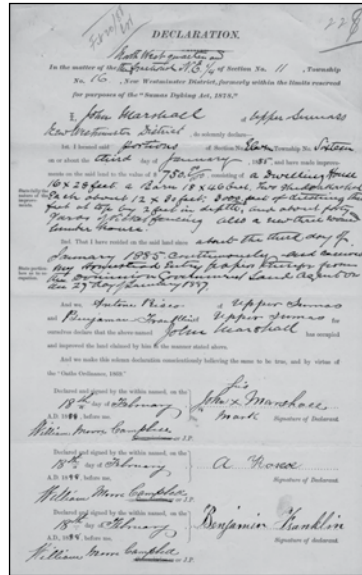 228
DECLARATION.
North West quarter and
In the matter of the Fractional N.E. 1/4 of Section No. 11, Township
No. 16, New Westminster District, formerly within the limits reserved
for purposes of the "Sumas Dyking Act, 1878."
I, John Marshall of Upper Sumass
New Westminster District, do solemnly declare—
1st. I broused said portions of Section No. Eleven Township No. Sixteen
on or about the third day of January 1885, and have made improve-
ments on the said land to the value of $750 consisting of a Dwelling House
16 x 28 feet, a Barn 18 x 40 feet, two Sheds
Each about 12 x 30 feet; 3000 feet of ditching
feet at top by 2 feet in depth, and about forty
also a new
lumber house.
2nd. That I have resided on the said land since about the third day of
January 1885 continuously and received
my Homestead Entry paper from
the Dominion Government Land Agent on
the 29 day of January 1887.
And we, Antoine of Upper Sumas
and Benjamin Franklin of Upper Sumas for
ourselves declare that the above named John Marshall has occupied
and improved the land claimed by him in the manner stated above.
And we make this solemn declaration conscientiously believing the same to be true, and by virtue of
the "Oaths Ordinance, 1869."
Declared and signed by the within named, on the
18th day of February
A.D. 188, before me,
William Moore Campbell
J.P.
his
John x Marshall
mark
Signature of Declarant.
Declared and signed by the within named, on the
18th day of February
A.D. 188, before me,
William Moore Campbell
J.P.
A
Signature of Declarant.
Declared and signed by the within named, on the
18th day of February
A.D. 188, before me,
William Moore Campbell
J.P.
Benjamin Franklin
Signature of Declarant.